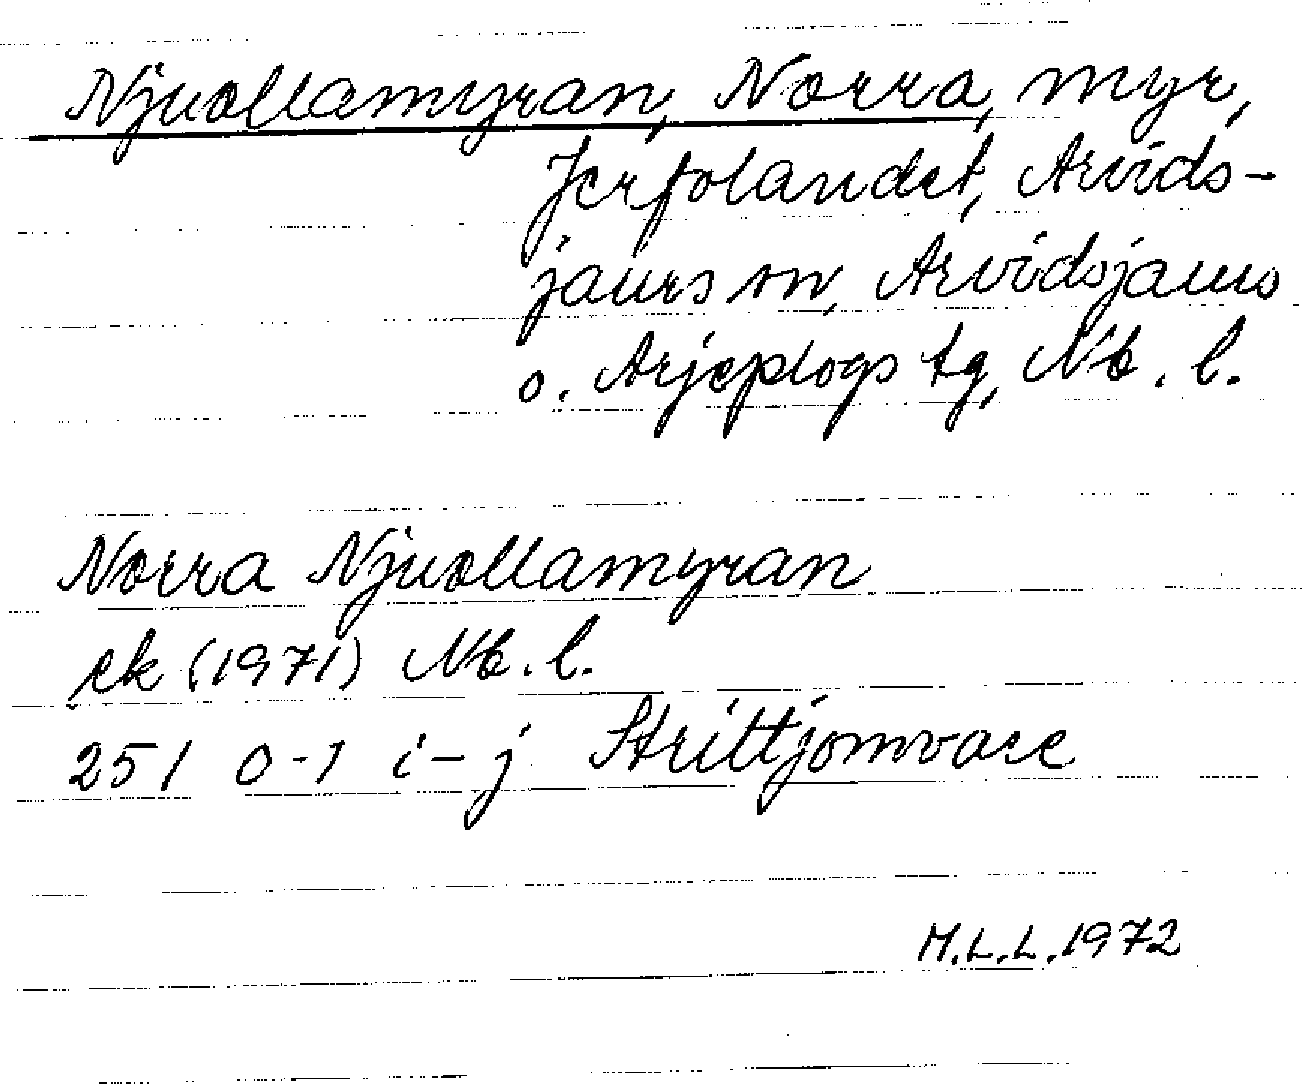 Njuollamyran, Norra, myr,
Jerfolandet, Arvids-
jaurs sn, Arvidsjaurs
o. Arjeplogs tg, Nb. l.
Norra Njuollamyran
ek (1971) Nb. l.
251 0-1 i-j Strittjomvare
M.L.L. 1972